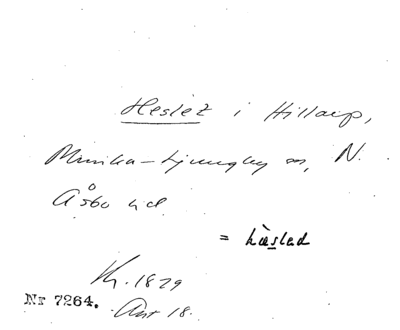 Heslet i Hillarp,
Munka-Ljungby sn, N.
Åsbo hd.
= Læsled
Kr. 1829
Nr 7264. Akt 18.